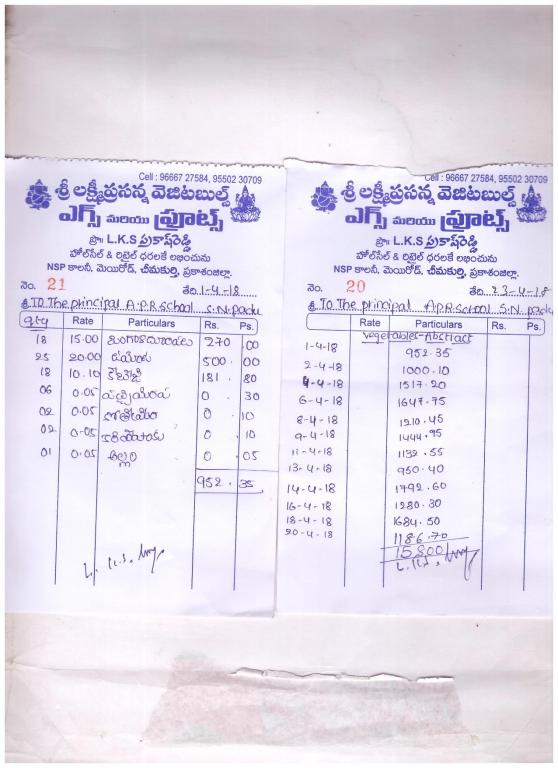 Cell : 96667 27584, 95502 30709
శ్రీ లక్ష్మీప్రసన్న వెజిటబుల్స్
ఎగ్స్ మరియు ఫ్రూట్స్
ప్రొ॥ L.K.S ప్రకాష్‌రెడ్డి
హోల్‌సేల్ & రిటైల్ ధరలకే లభించును
NSP కాలనీ, మెయిన్‌రోడ్, చీమకుర్తి, ప్రకాశంజిల్లా.
నెం. 21 తేది 1-4-18
శ్రీ To The principal A.P.R.School S.N.padu
Qty Rate Particulars Rs. Ps.
18 15.00 బంగాళాదుంపలు 270 .00
25 20.00 టమోట 500 .00
18 10.10 క్యాబేజి 181 . 80
06 0.05 పచ్చిమిరప 0 . 30
02 0.05 కొత్తిమీర 0 . 10
02 0.05 కరివేపాకు 0 . 10
01 0.05 అల్లం 0 . 05
952 . 35
Cell : 96667 27584, 95502 30709
శ్రీ లక్ష్మీప్రసన్న వెజిటబుల్స్
ఎగ్స్ మరియు ఫ్రూట్స్
ప్రొ॥ L.K.S ప్రకాష్‌రెడ్డి
హోల్‌సేల్ & రిటైల్ ధరలకే లభించును
NSP కాలనీ, మెయిన్‌రోడ్, చీమకుర్తి, ప్రకాశంజిల్లా.
నెం. 20 తేది 23-4-18
శ్రీ To The principal A.P.R.School S.N.padu
Rate Particulars Rs. Ps.
Vegetables-Abstract
1-4-18 952.35
2-4-18 1000.10
4-4-18 1517.20
6-4-18 1647.75
8-4-18 1210.45
9-4-18 1444.95
11-4-18 1132.55
13-4-18 950.40
14-4-18 1792.60
16-4-18 1280.30
18-4-18 1684.50
20-4-18 1186.70
15800